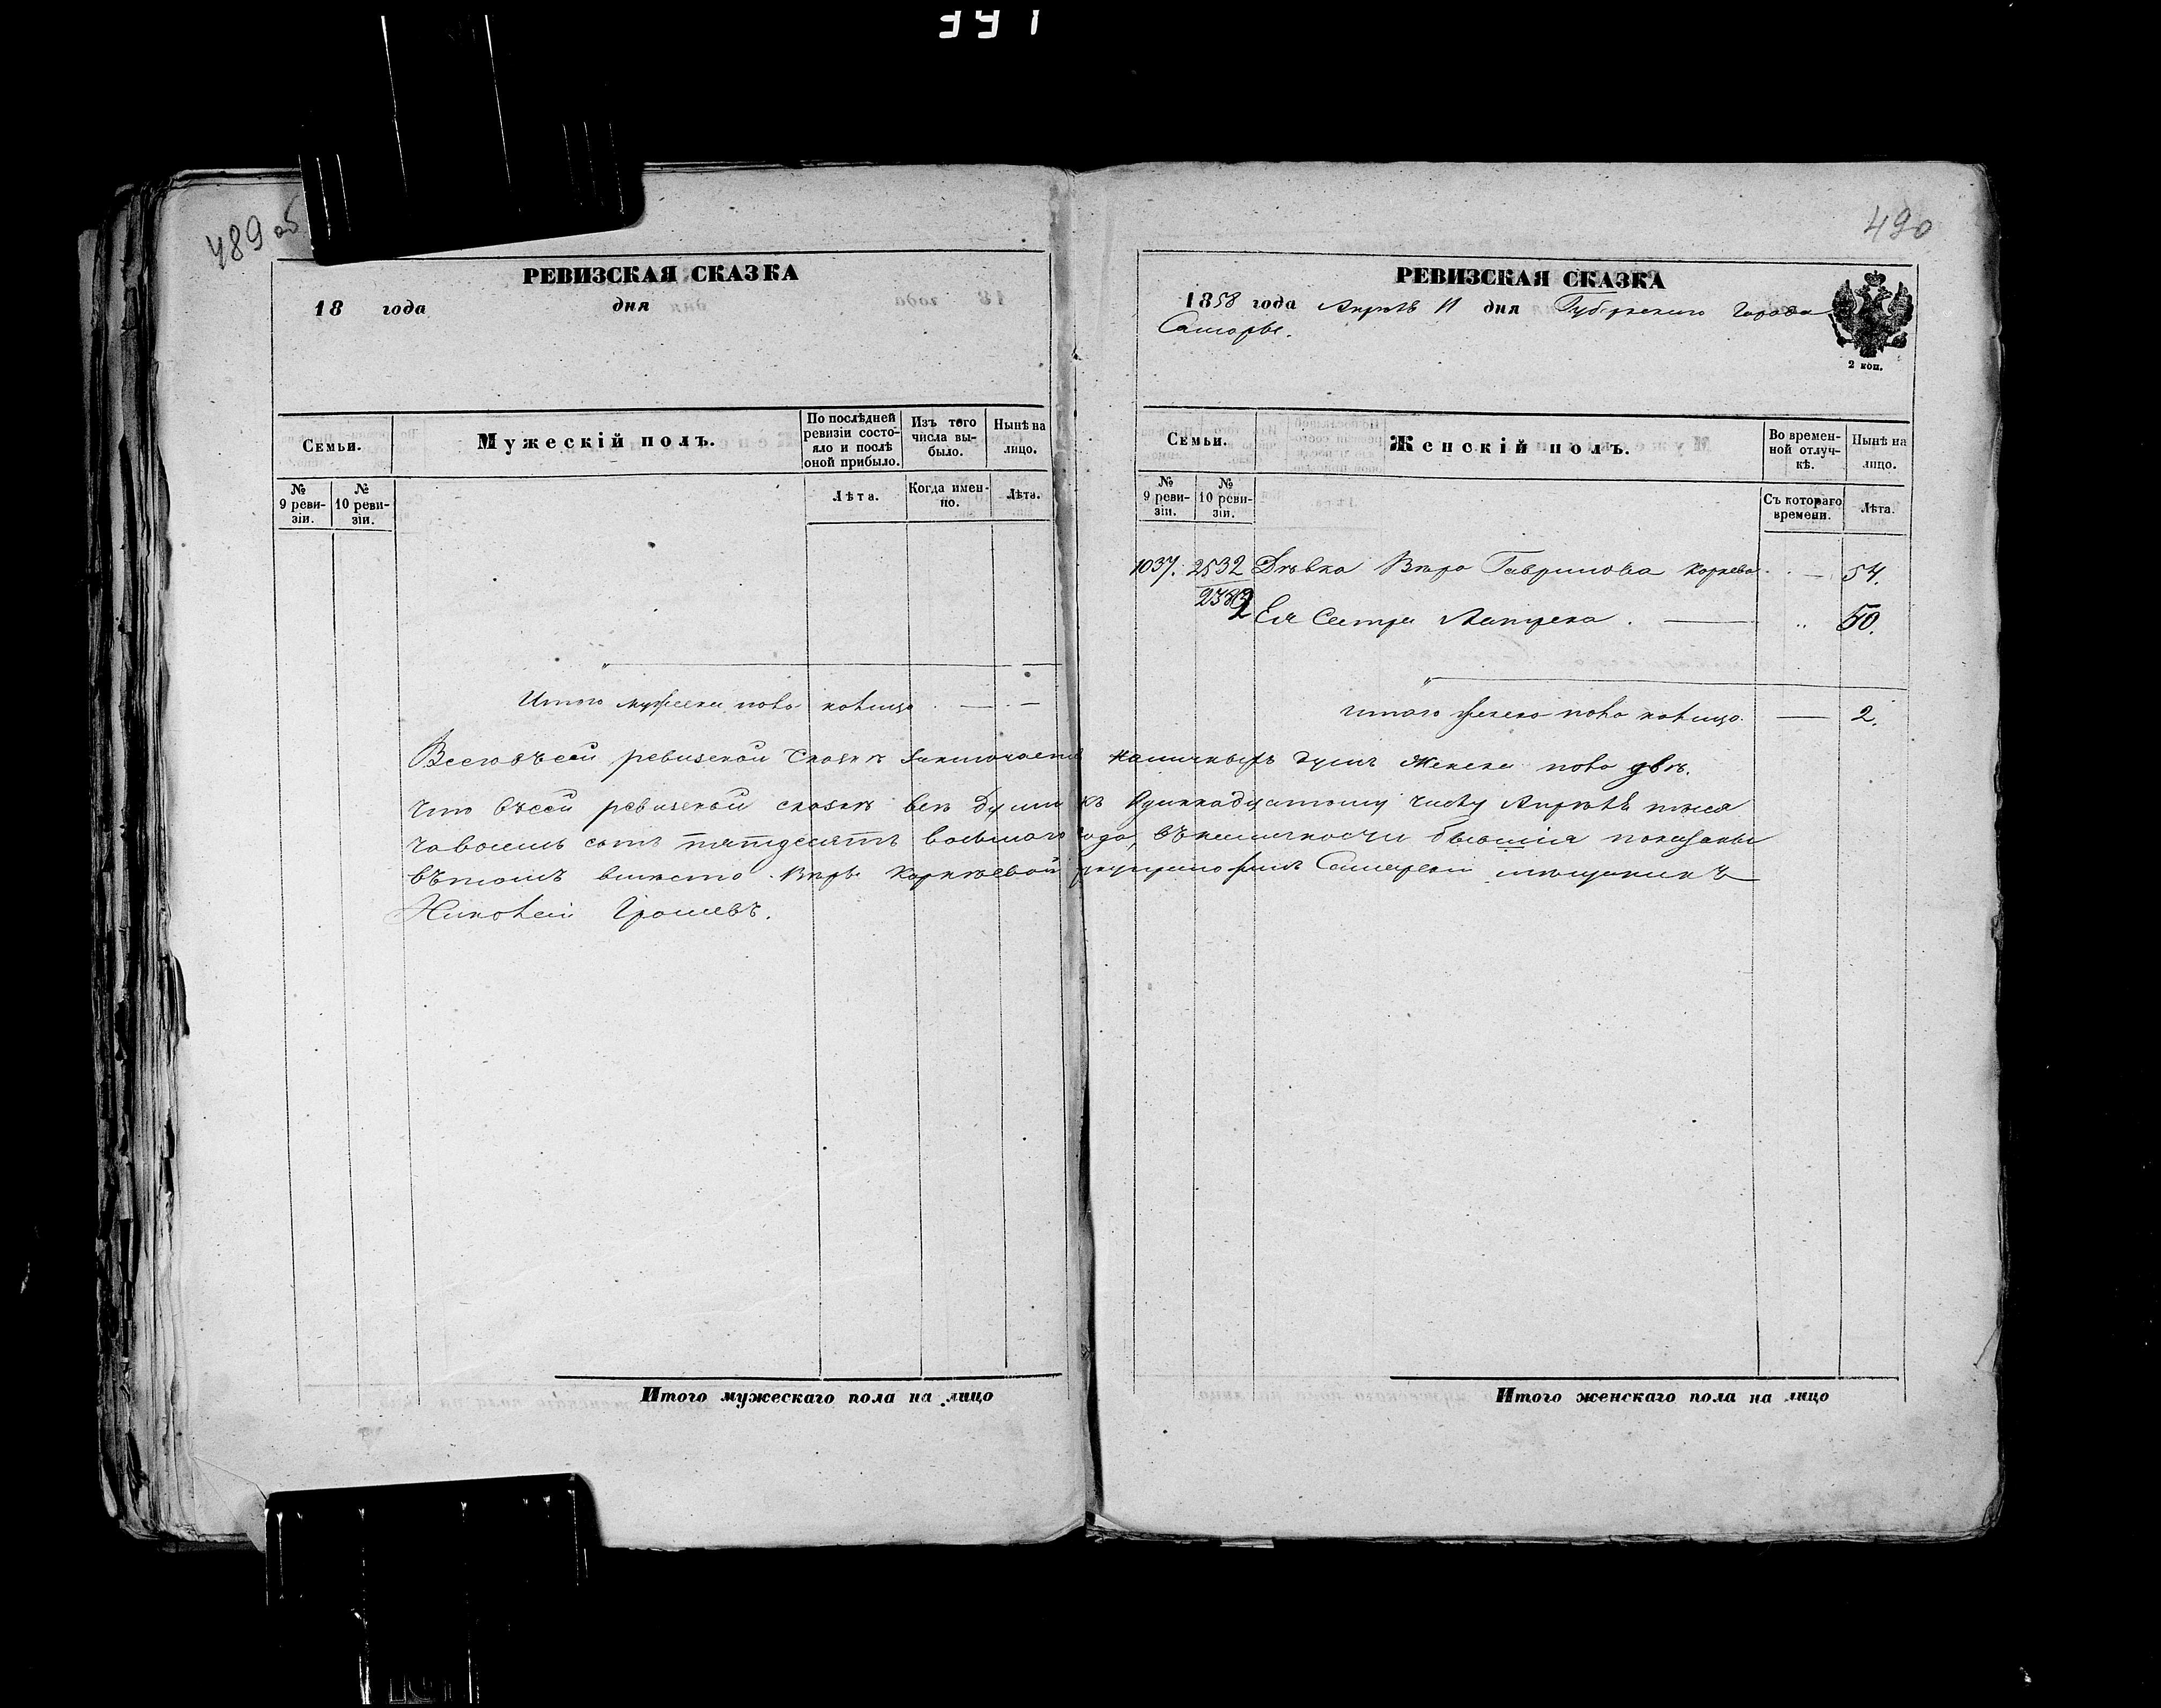 391
489 об
РЕВИЗСКАЯ СКАЗКА
18 года дня
Семьи.
Мужескій полъ.
По послѣдней ревизіи состояло и послѣ оной прибыло.
Изъ того числа выбыло.
Нынѣ на лицо.
№ 9 ревизіи.
№ 10 ревизіи.
Лѣта.
Когда именно.
Лѣта.
Итого мужеска пола налицо — —
Итого мужескаго пола на лицо
490
РЕВИЗСКАЯ СКАЗКА
1858 года Апрѣль 11 дня Губернскаго города
Самары.
2 коп.
Семьи.
Женскій полъ.
Во временной отлучкѣ.
Нынѣ на лицо.
№ 9 ревизіи.
№ 10 ревизіи.
Съ котораго времени.
Лѣта.
1037. 2532 Дѣвка Вѣра Гаврилова Корнева — 54.
Ея Сестра — 50.
итого женска пола налицо. — 2.
Всего въ сей ревизской сказкѣ заключается наличныхъ душъ женска пола двѣ.
Что въ сей ревизской сказкѣ всѣ души къ одиннадцатому числу Апрѣля тыся
ча восемь сотъ пятдесятъ восьмаго года, въ наличности бывшія показаны
въ томъ вмѣсто Вѣры Корнѣевой Самарскій мѣщанинъ
Николай
Итого женскаго пола на лицо